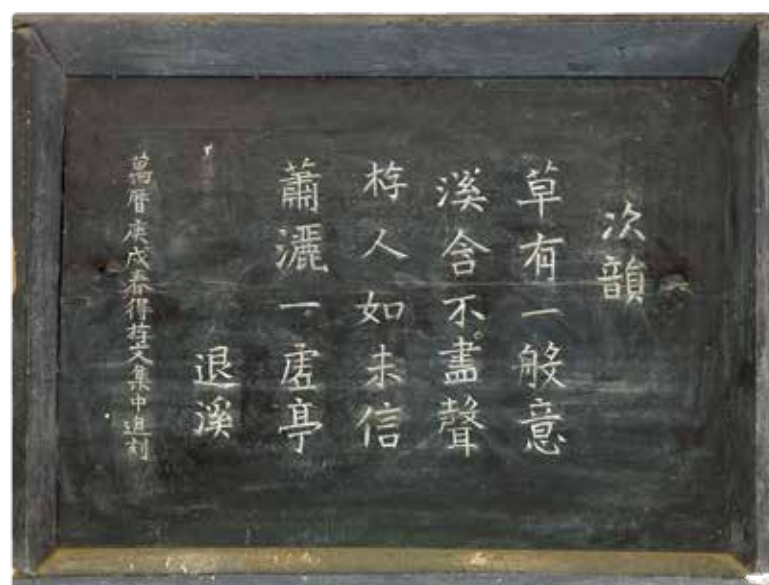 次韻
草有一般意
溪含不盡聲
斿人如未信
蕭灑一虗亭
退溪
萬曆庚戌春得扵文集中追刻